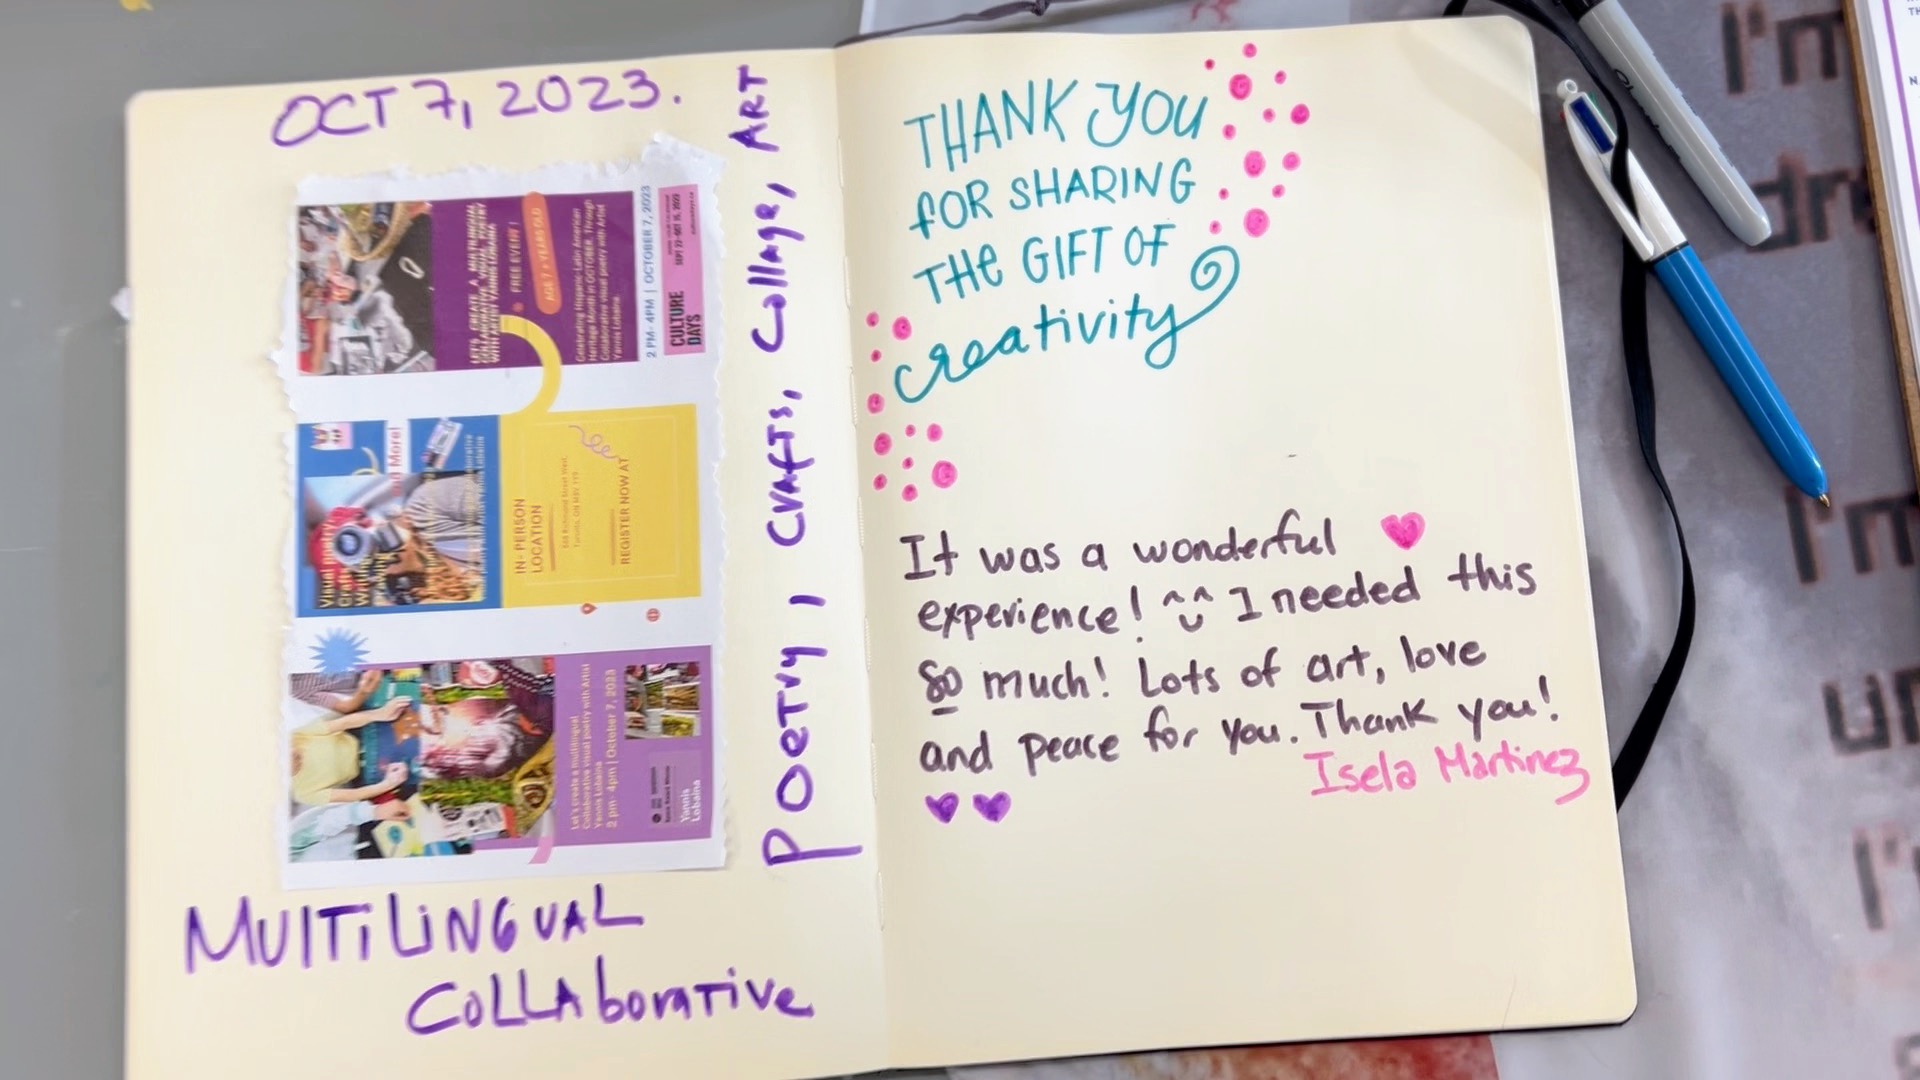 OCT 7, 2023.
LET'S CREATE A MULTILINGUAL
COLLABORATIVE VISUAL POETRY
WITH ARTIST YANNIS LOBAINA
FREE EVENT!
AGE 7 + YEARS OLD
Celebrating Hispanic-Latin American
Heritage Month in OCTOBER. Through
Collaborative visual poetry with Artist
Yannis Lobaina.
2 PM- 4PM | OCTOBER 7, 2023
CULTURE
DAYS
SEPT 22-OCT 15, 2023
Visual poetry
and More!
IN-PERSON
LOCATION
REGISTER NOW AT
Let's create a multilingual
Collaborative visual poetry with Artist
Yannis Lobaina
2 pm- 4pm | October 7, 2023
Yannis
Lobaina
POETRY, CrAfTs, Collage, ART
MULTiLiNGUAL
COLLAborATive
THANK YOU
FOR SHARING
THE GIFT OF
creativity
It was a wonderful
experience! I needed this
so much! Lots of art, love
and peace for you. Thank you!
Isela Martinez
I'm
dre
I'm
un
I'